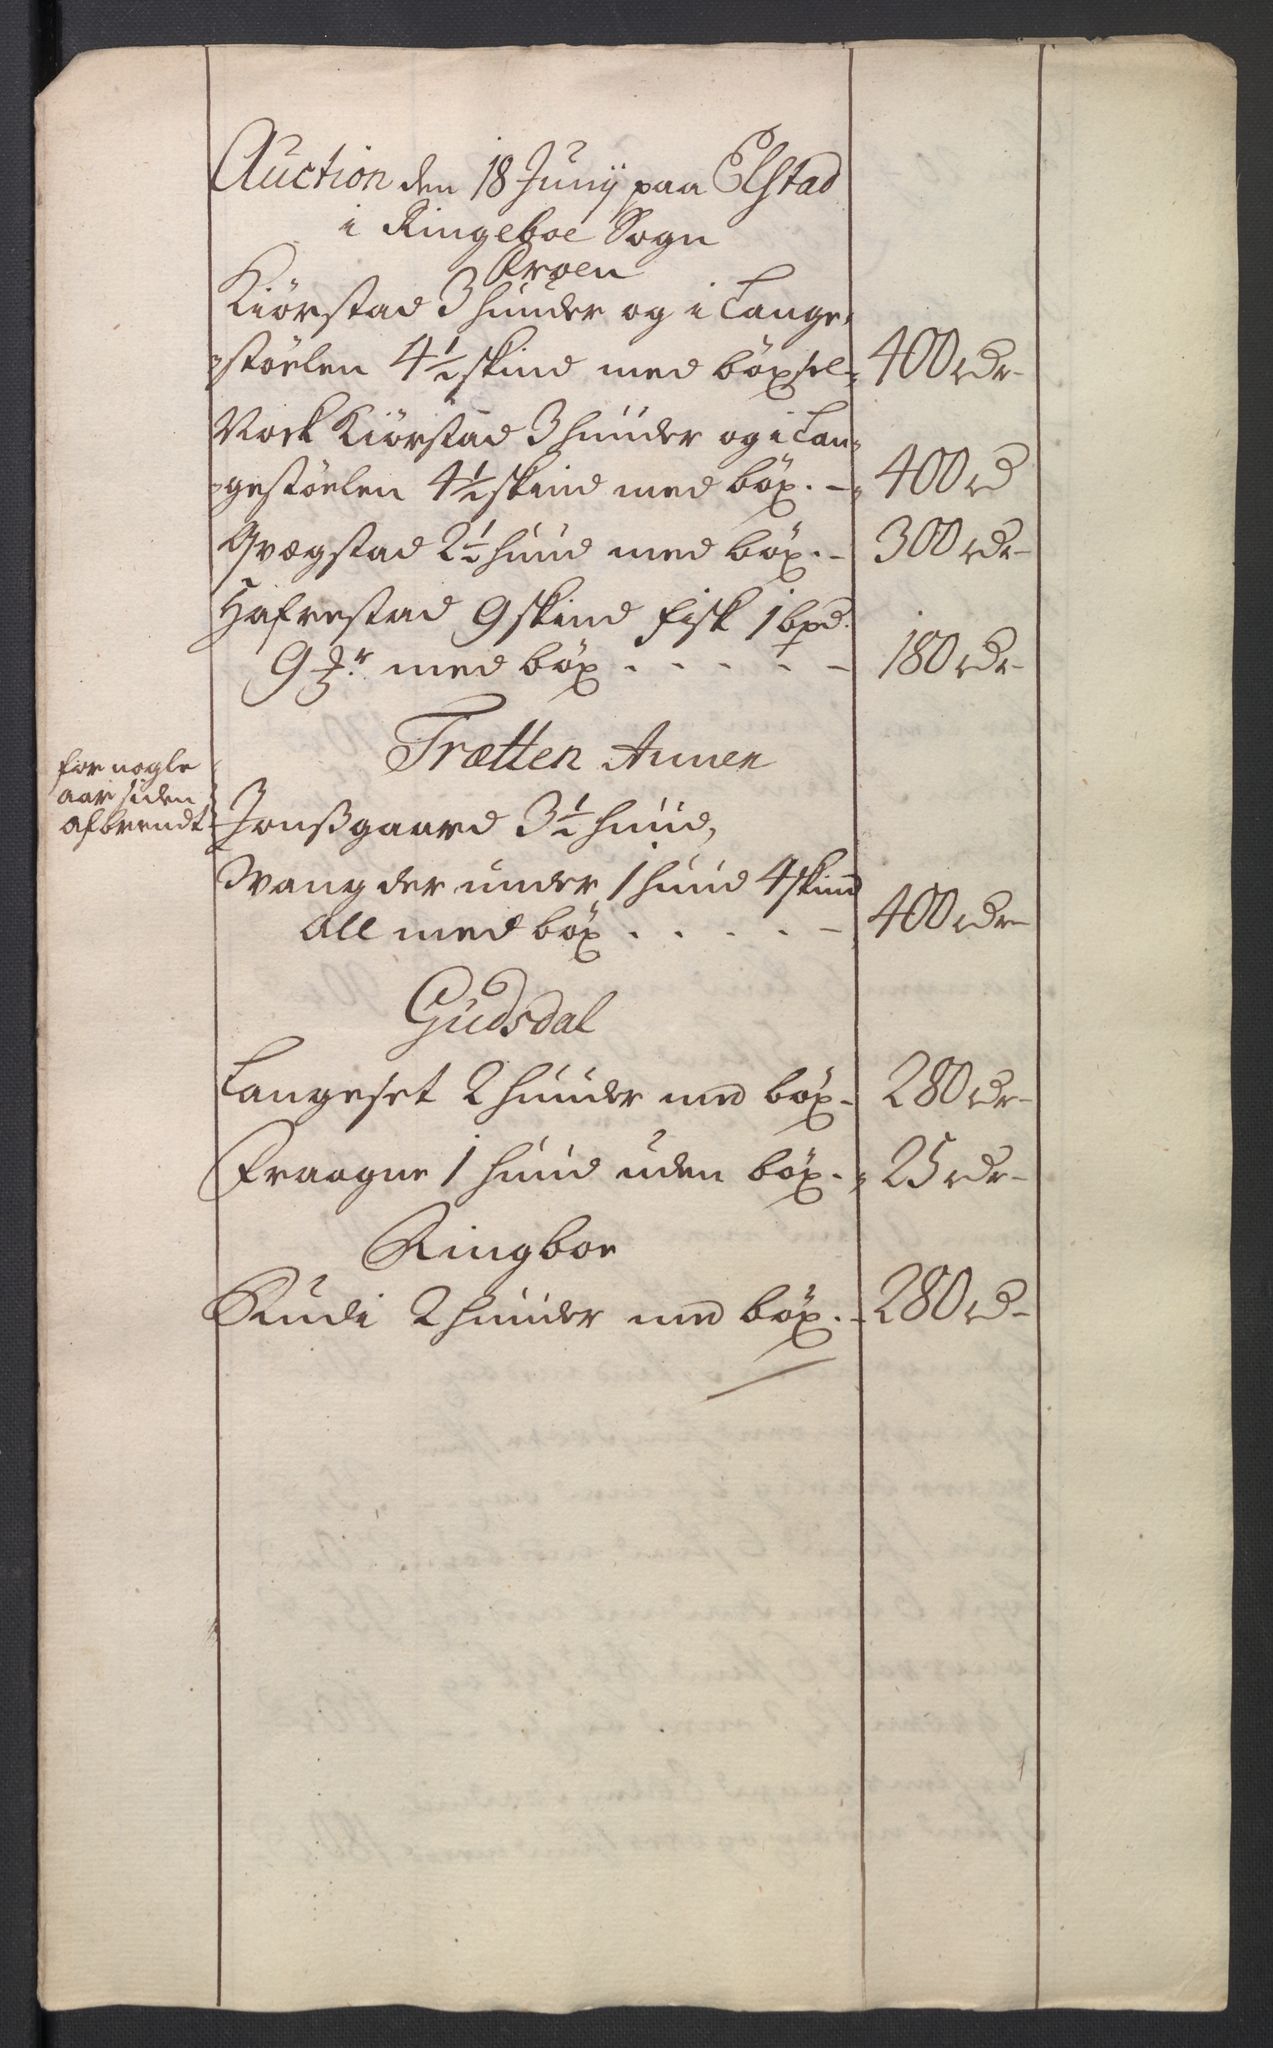 Auction den 18 Junij paa Elstad
i Ringeboe Sogn
Øyen
Kiørstad 3 huuder og i Lange-
støelen 4 1/2 skind med böxsel - 400 rdr -
Nock Kiørstad 3 huuder og i Lan-
gestøelen 4 1/2 skind med böx. - 400 rd
Qvægstad 2 1/2 huud med böx. - 300 rdr -
Hafrestad 9 skind fisk 1 bpd.
9 med böx . . . . - 180 rdr -
Trætten Annex
for nogle
aar siden
afbrendt
Jonßgaard 3 1/2 huud,
Wang der under 1 huud 4 skind
All med böx . . . . - 400 rdr -
Gudsdal
Langeset 2 huuder med böx - 280 rdr -
Fraagne 1 huud uden böx. - 25 rdr -
Ringboe
Rudi 2 huuder med böx. - 280 rd -